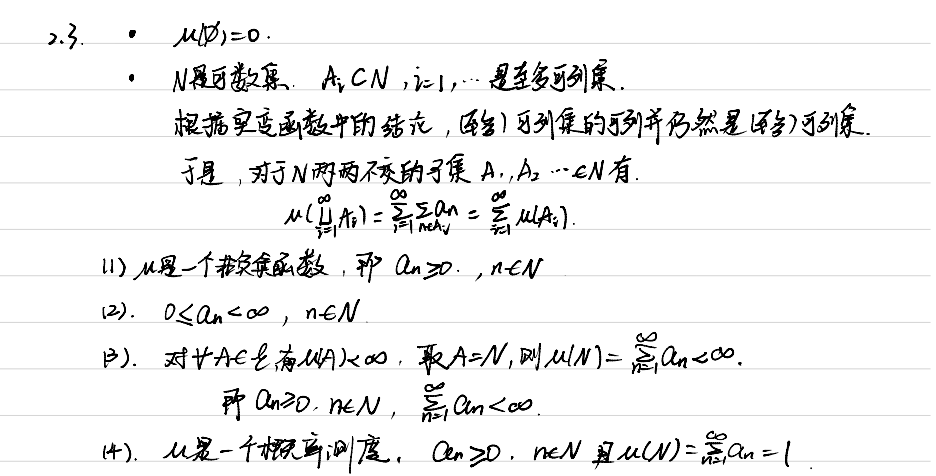 2.3. • μ(∅)=0.
• N是可数集. Aᵢ⊂N, i=1,… 是至多可列集.
根据实变函数中的结论,(至多)可列集的可列并仍然是(至多)可列集.
于是,对于N两两不交的子集 A₁,A₂…∈N有.
μ(∐_{i=1}^{∞} Aᵢ)=∑_{i=1}^{∞}∑_{n∈Aᵢ} aₙ=∑_{i=1}^{∞} μ(Aᵢ).
(1) μ是一个非负集函数,即 aₙ≥0.,n∈N
(2). 0≤aₙ<∞, n∈N.
(3). 对∀A∈ 有μ(A)<∞. 取A=N,则μ(N)=∑_{n=1}^{∞} aₙ<∞.
即 aₙ≥0. n∈N, ∑_{n=1}^{∞} aₙ<∞.
(4). μ是一个概率测度. aₙ≥0. n∈N 且μ(N)=∑_{n=1}^{∞} aₙ=1